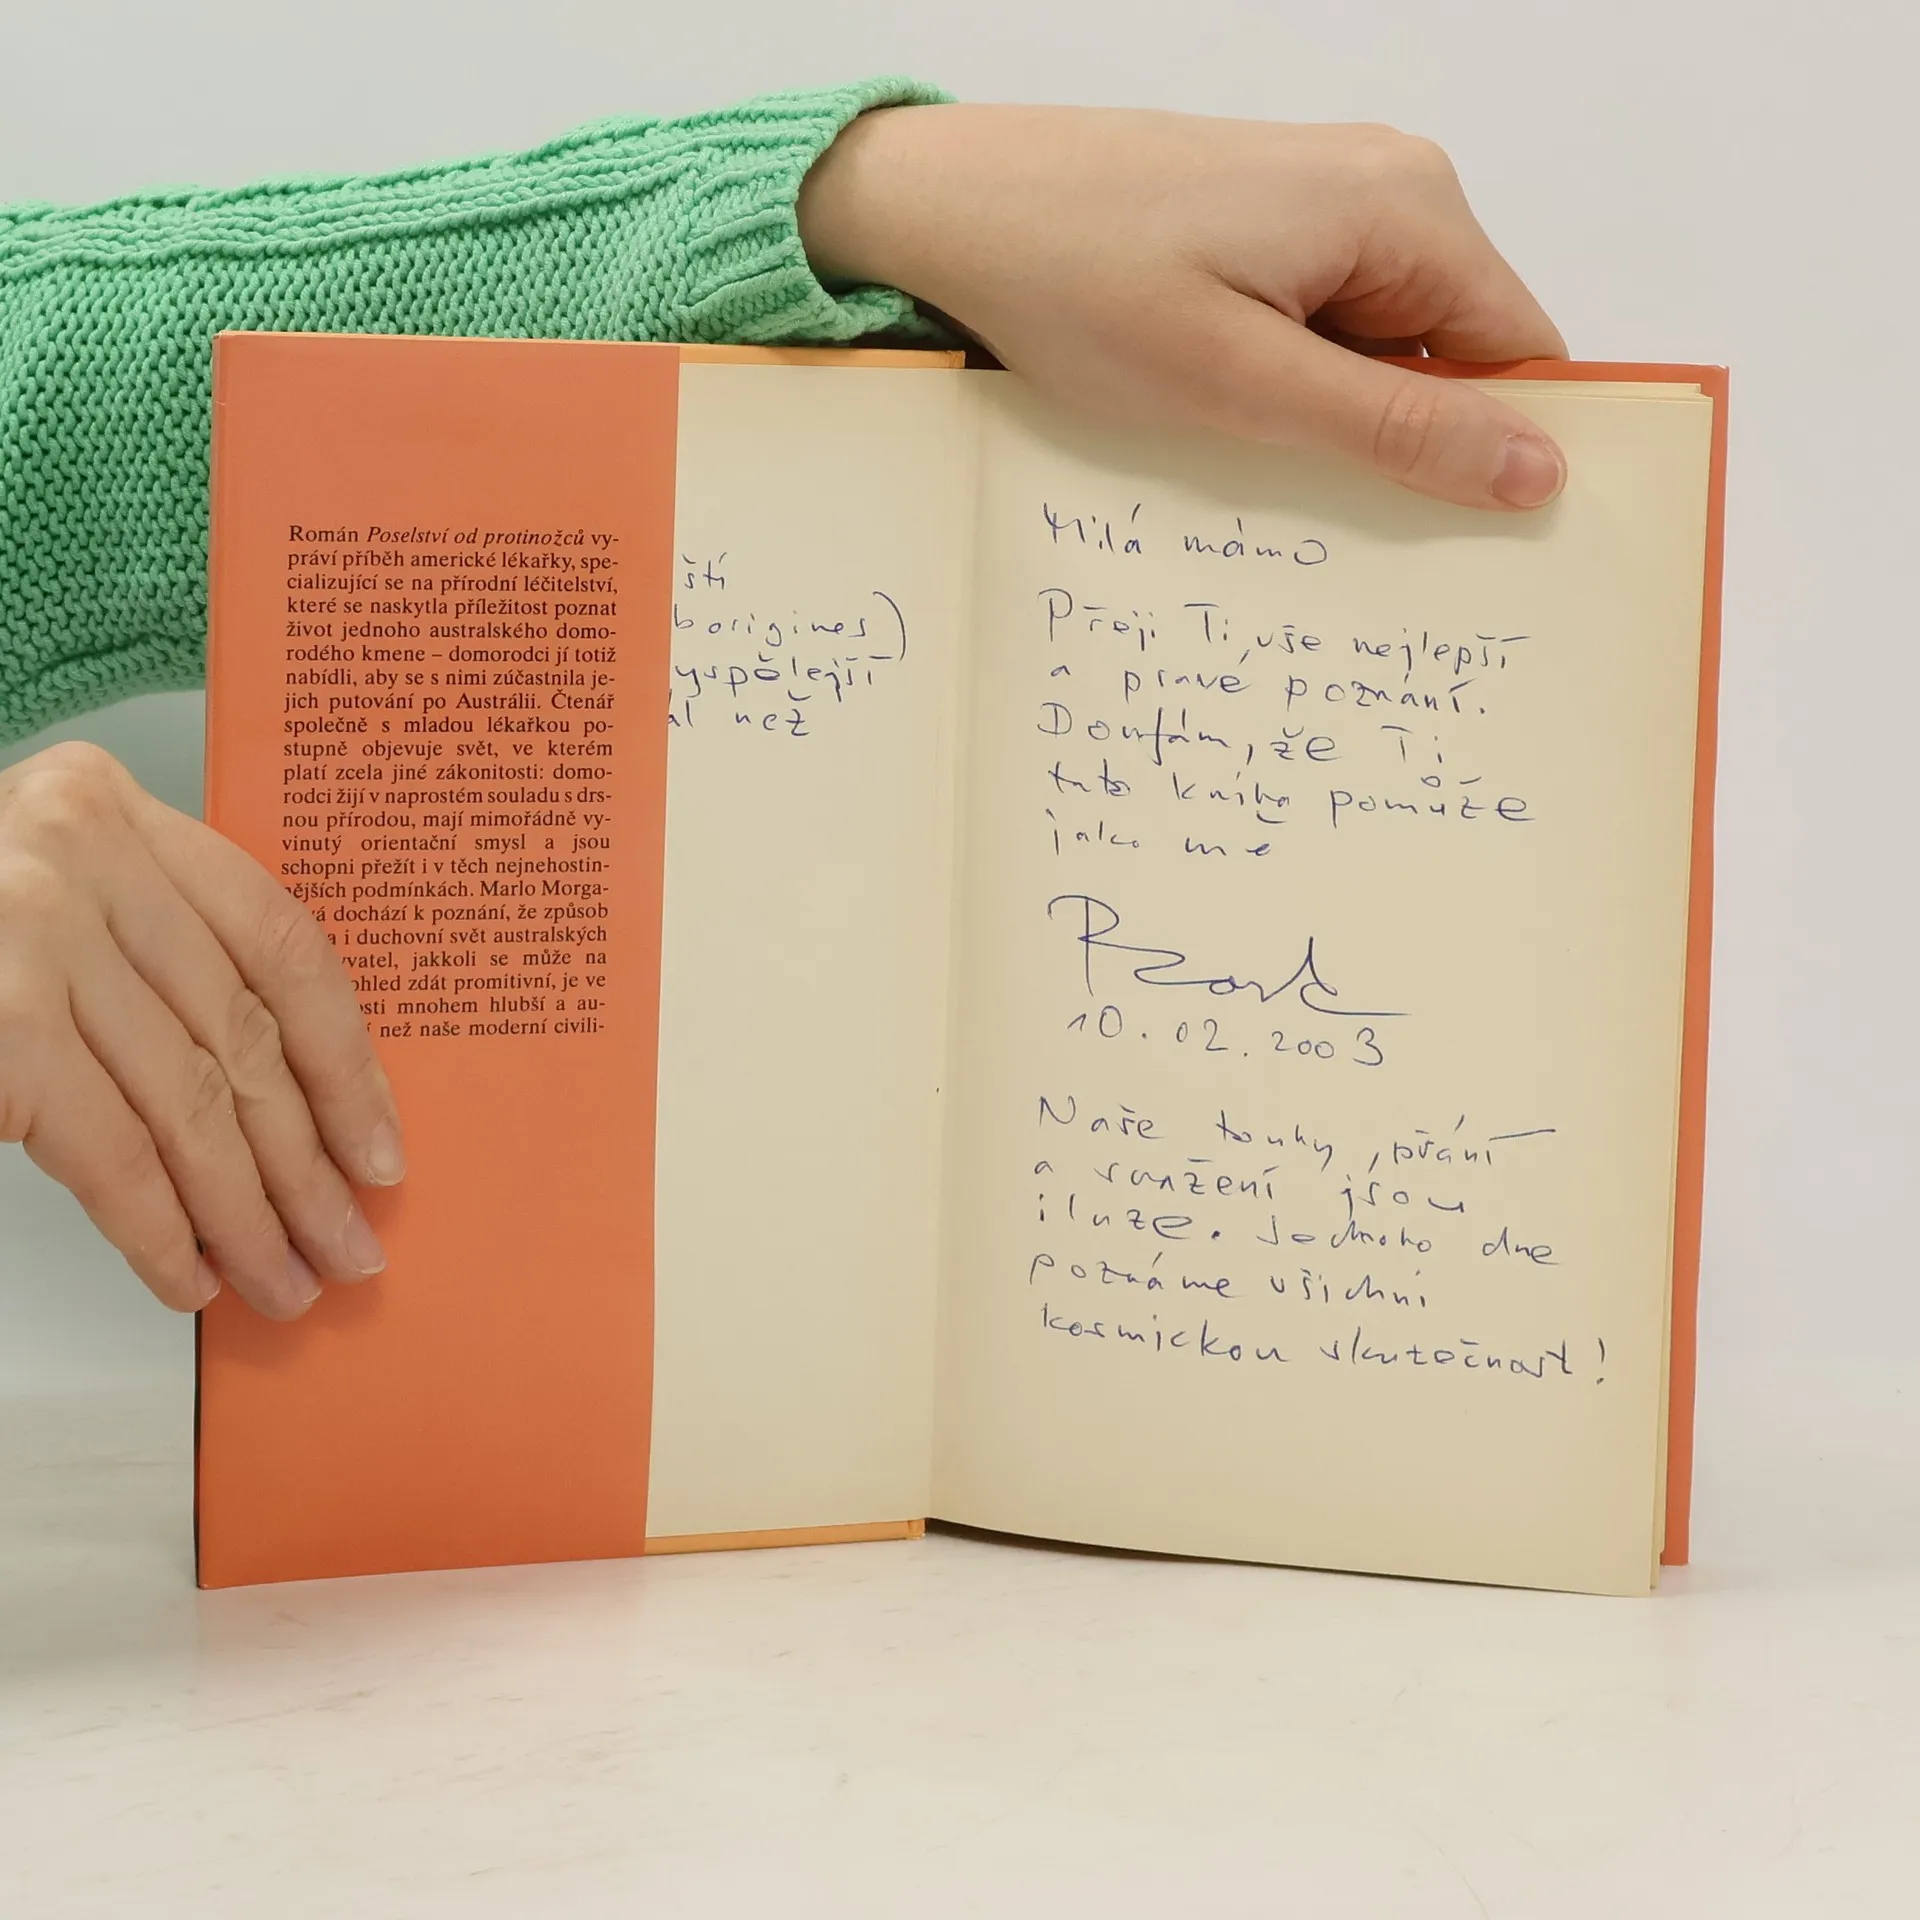 Román Poselství od protinožců vy-
práví příběh americké lékařky, spe-
cializující se na přírodní léčitelství,
které se naskytla příležitost poznat
život jednoho australského domo-
rodého kmene – domorodci jí totiž
nabídli, aby se s nimi zúčastnila je-
jich putování po Austrálii. Čtenář
společně s mladou lékařkou po-
stupně objevuje svět, ve kterém
platí zcela jiné zákonitosti: domo-
rodci žijí v naprostém souladu s drs-
nou přírodou, mají mimořádně vy-
vinutý orientační smysl a jsou
schopni přežít i v těch nejnehostin-
nějších podmínkách. Marlo Morga-
vá dochází k poznání, že způsob
a i duchovní svět australských
yvatel, jakkoli se může na
ohled zdát promitivní, je ve
osti mnohem hlubší a au-
í než naše moderní civili-
ští
borigines)
yspělejší
ál než
Milá mámo
Přeji Ti vše nejlepší
a pravé poznání.
Doufám, že Ti
tato kniha pomůže
jako mě
10.02.2003
Naše touhy, přání
a snažení jsou
iluze. Jednoho dne
poznáme všichni
kosmickou skutečnost!